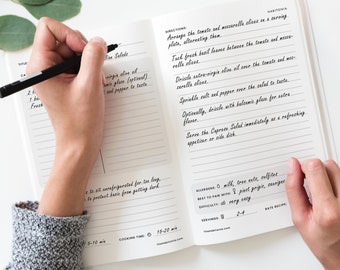 Salad
extra virgin olive oil
(optional)
and pepper to taste
to sit unrefrigerated for too long,
to protect basil from getting dark.
5-10 min
COOKING TIME: 15-20 min
DIRECTIONS:
Arrange the tomato and mozzarella slices on a serving
plate, alternating them.
Tuck fresh basil leaves between the tomato and mozza-
rella slices.
Drizzle extra-virgin olive oil over the tomato and moz-
zarella slices.
Sprinkle salt and pepper over the salad to taste.
Optionally, drizzle with balsamic glaze for extra
flavor.
Serve the Caprese Salad immediately as a refreshing
appetizer or side dish.
ALLERGENS: milk, tree nuts, sulfites
BEST TO PAIR WITH: pinot grigio,
DIFFICULTY: very easy
SERVINGS: 2-4
DATE RECIPE: